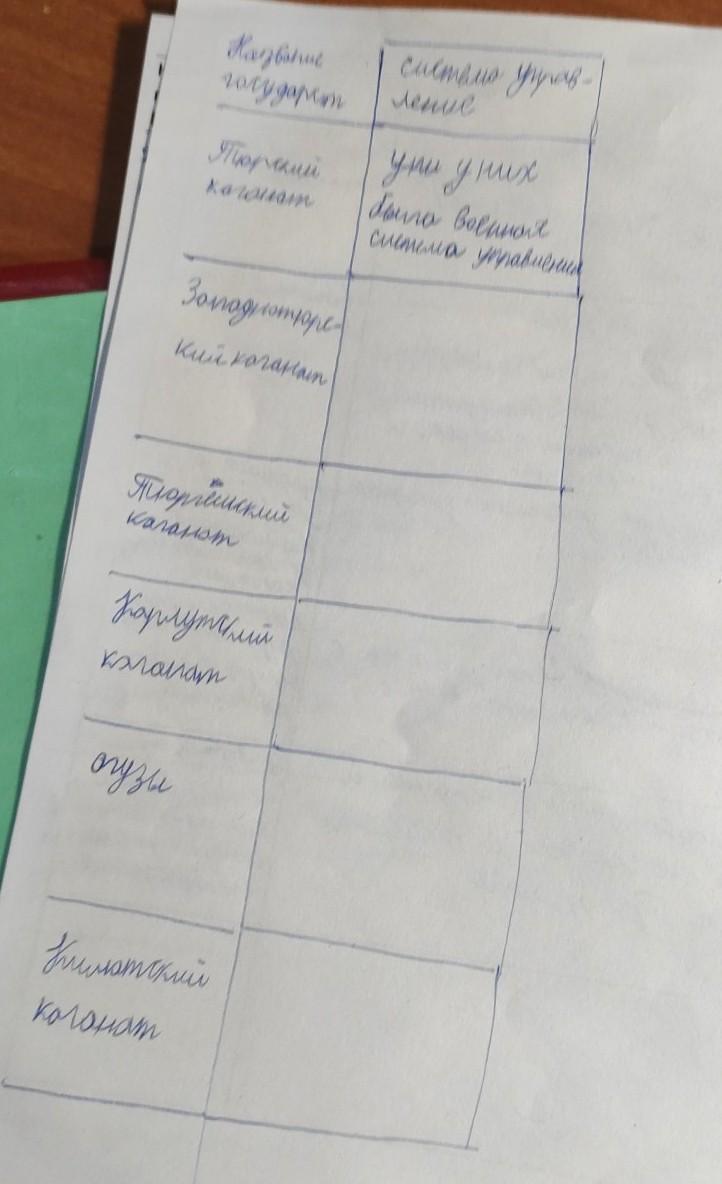 Название
государст
система управ-
ление
Тюрский
каганат
уни у них
была военная
система управлении
Западнотюрс-
кий каганат
Тюргешский
каганат
Карлукский
каганат
огузы
Кимакский
каганат